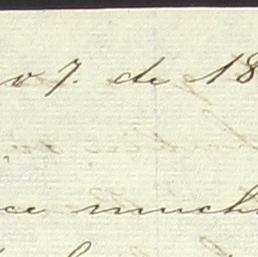 v 7. de 18
ce much